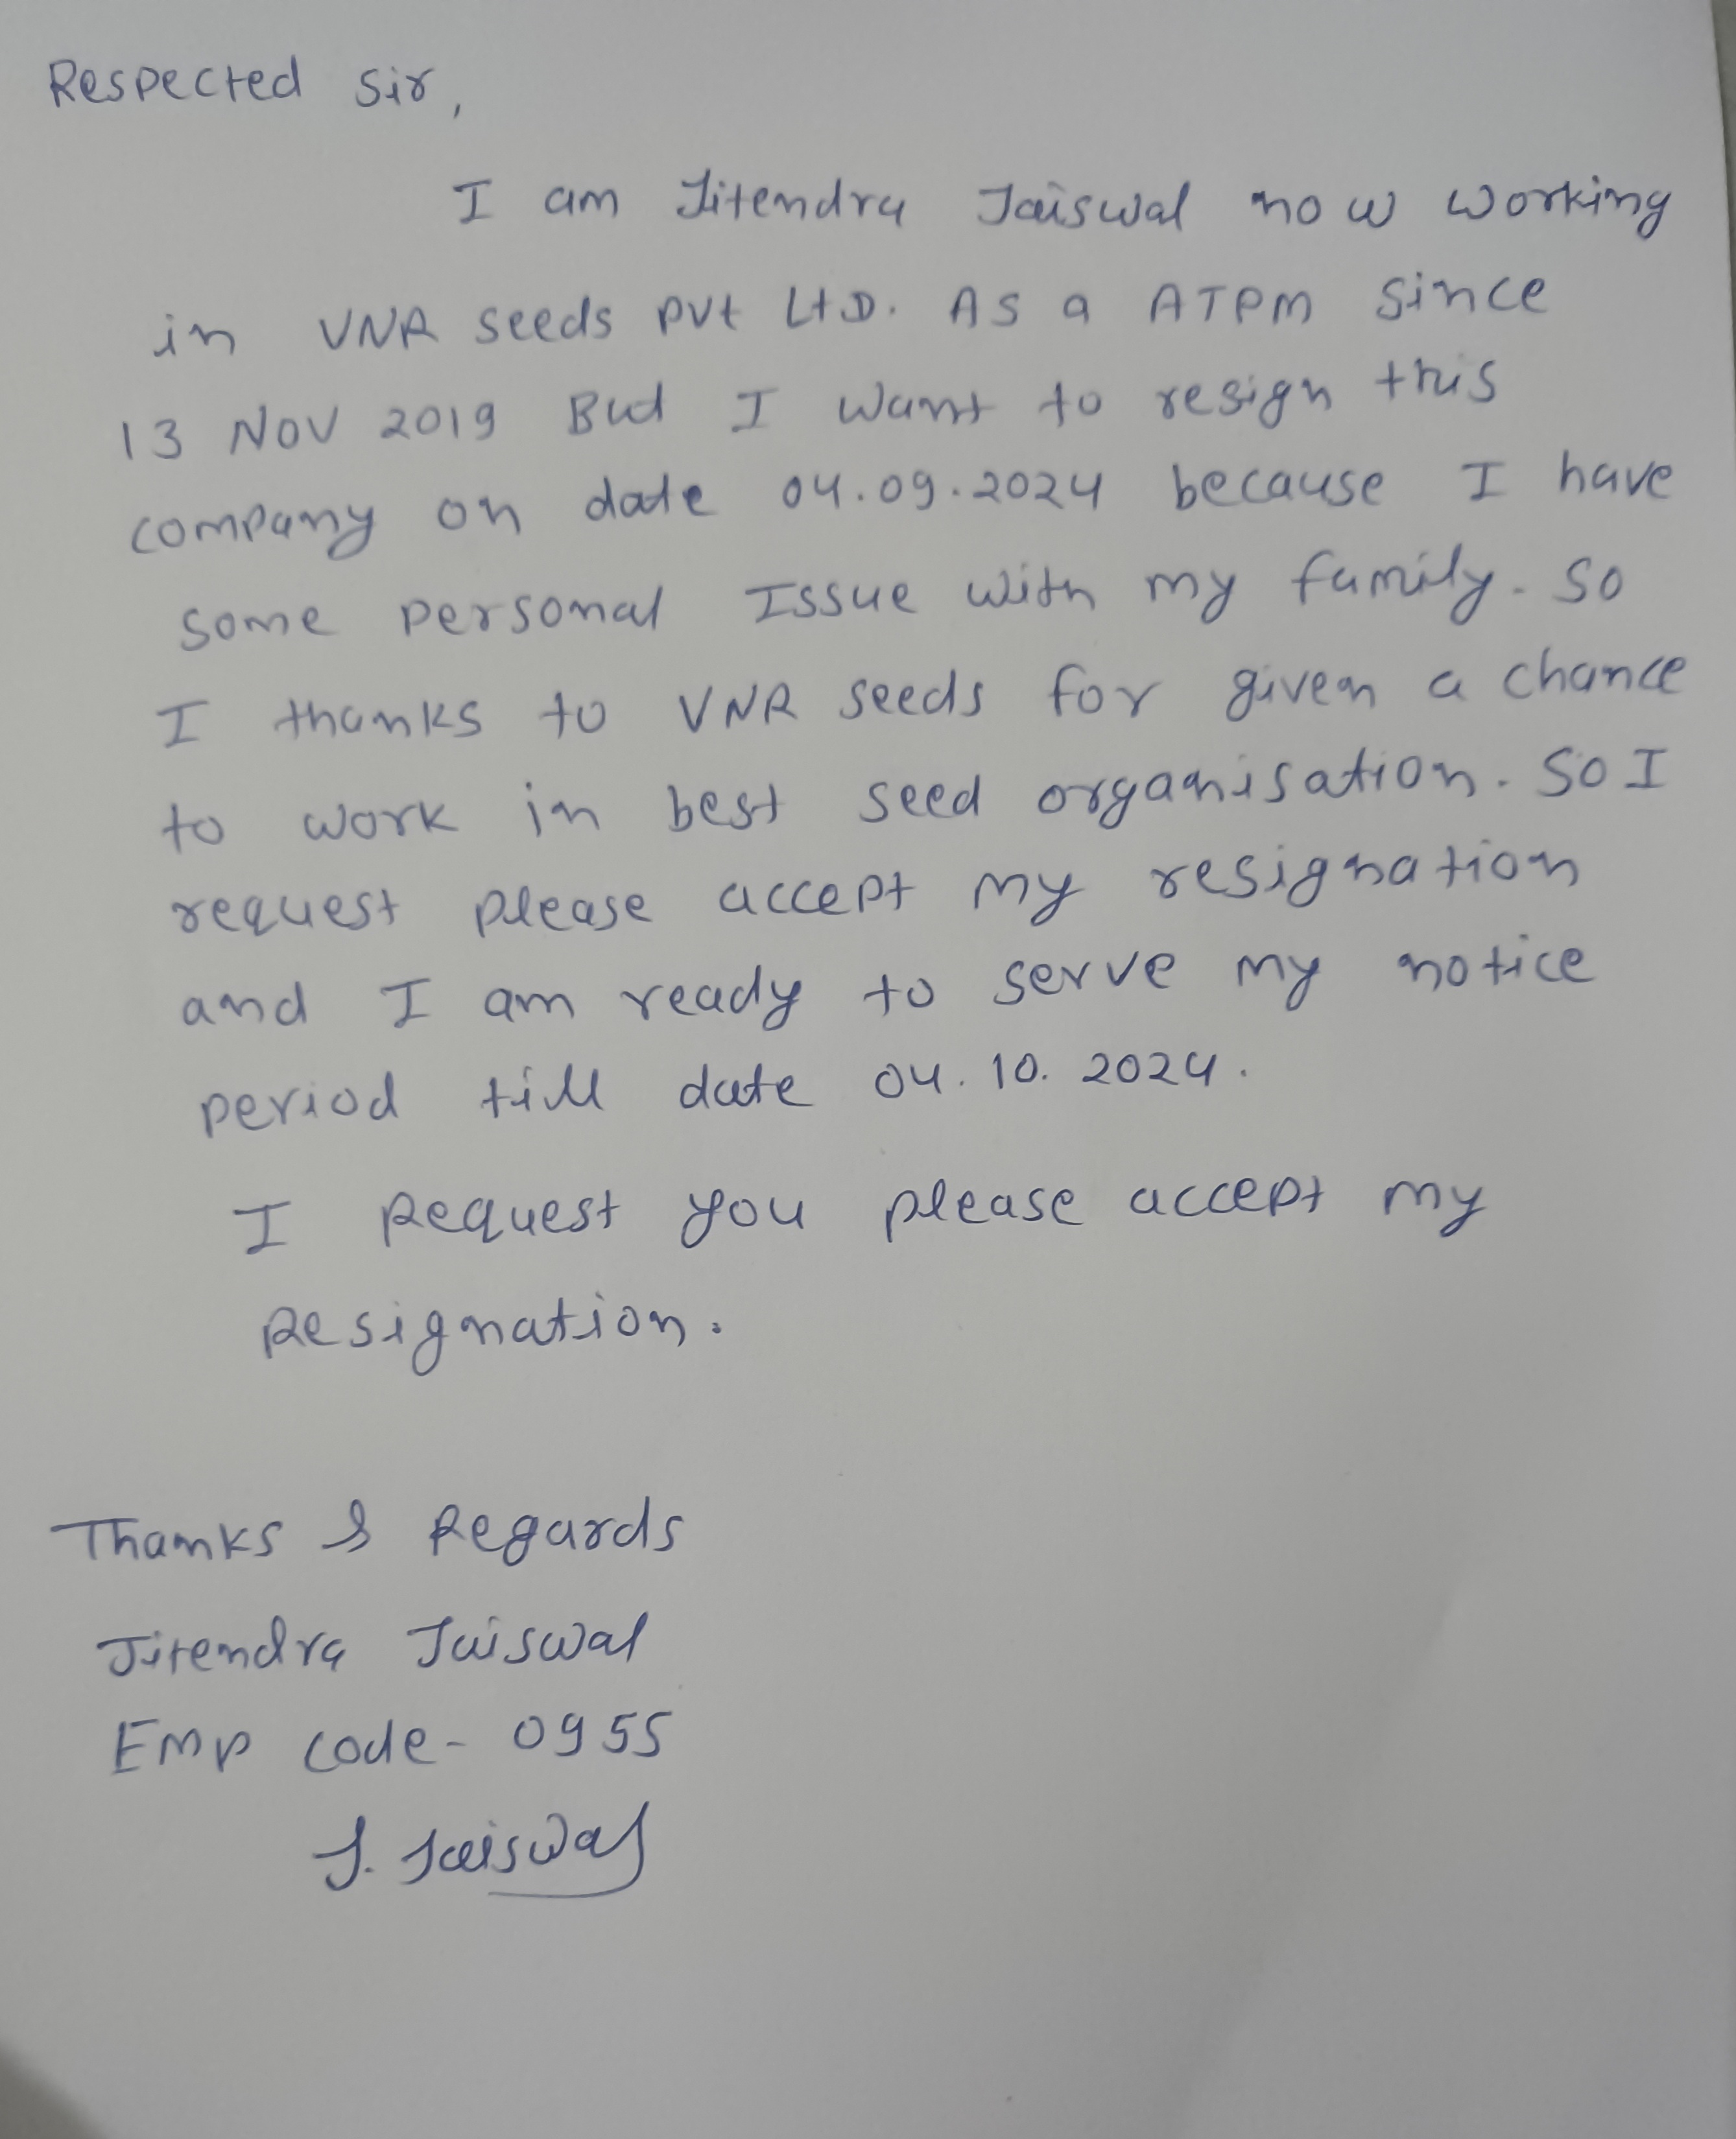 Respected Sir,
I am Jitendra Jaiswal now working
in VNR seeds pvt Ltd. As a ATPM since
13 NOV 2019 But I want to resign this
company on date 04.09.2024 because I have
some personal Issue with my family. So
I thanks to VNR seeds for given a chance
to work in best seed organisation. So I
request please accept my resignation
and I am ready to serve my notice
period till date 04.10.2024.
I Request you please accept my
Resignation.
Thanks & Regards
Jitendra Jaiswal
Emp code- 0955
J. Jaiswal